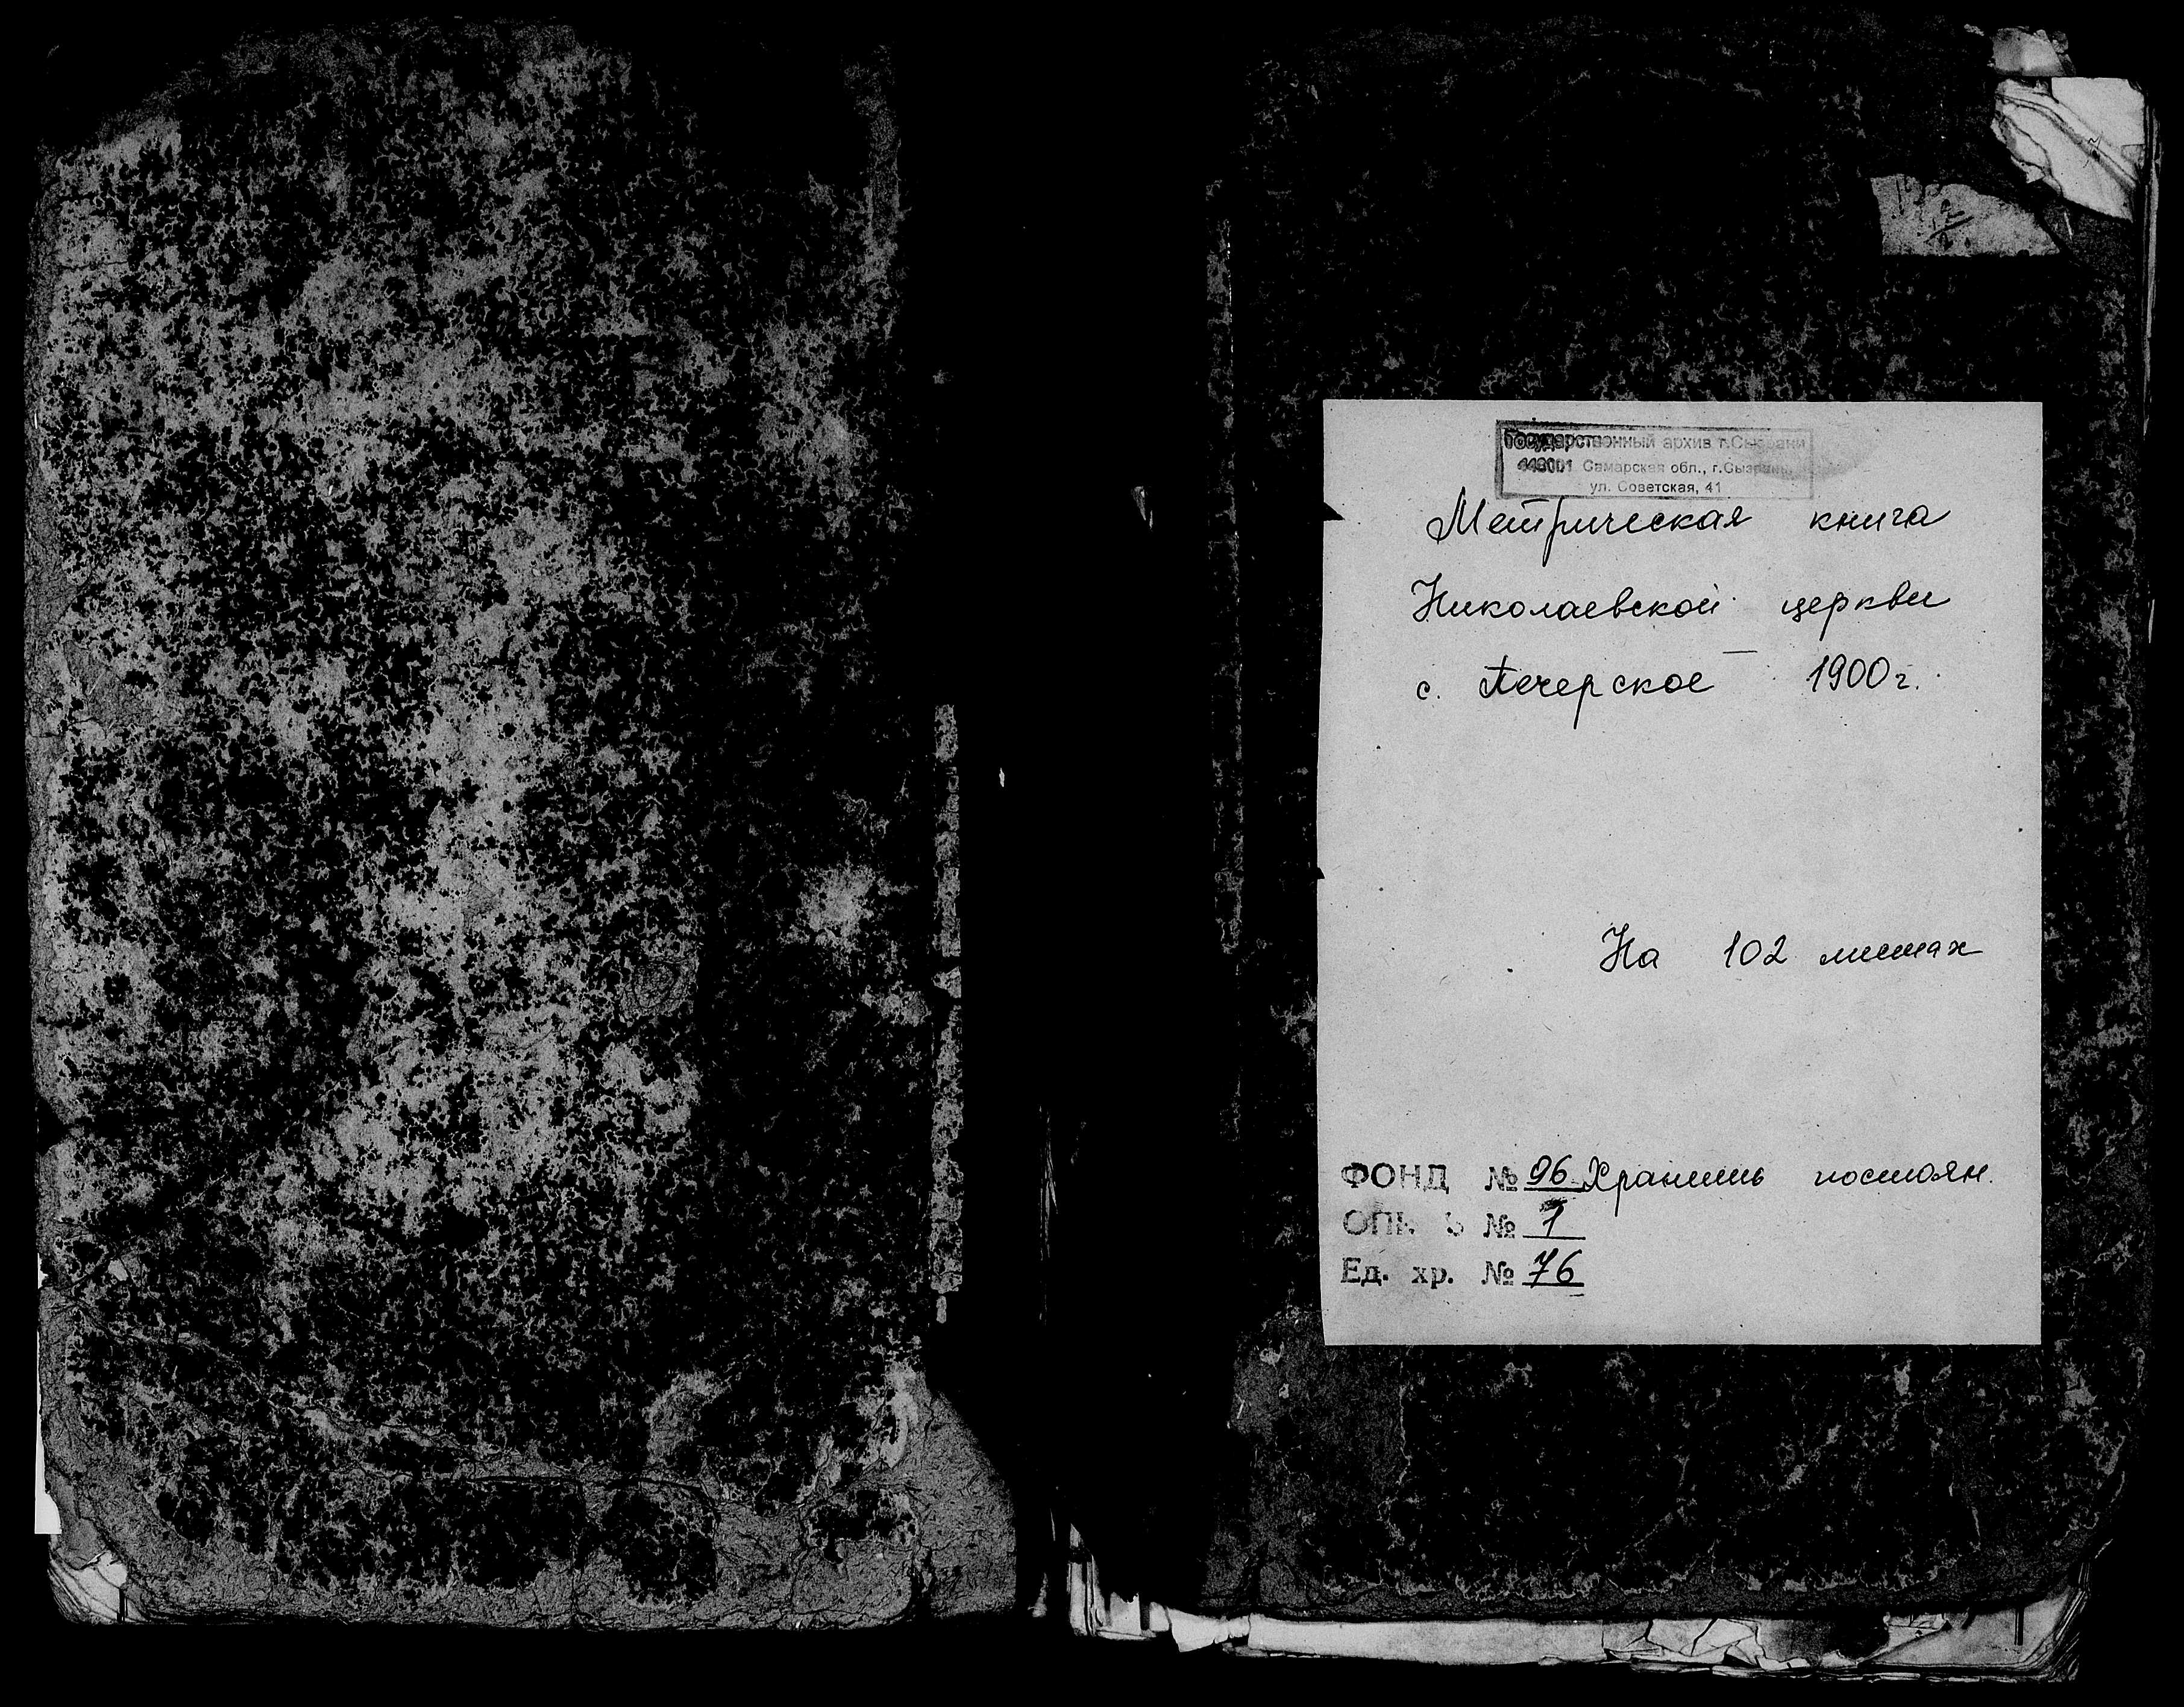 Государственный архив г.Сызрани
446001 Самарская обл., г.Сызрань
ул. Советская, 41
Метрическая книга
Николаевской церкви
с. Печерское 1900 г.
На 102 листах
ФОНД № 96 Хранить постоян.
ОПИ Ь № 1
Ед. хр. № 76